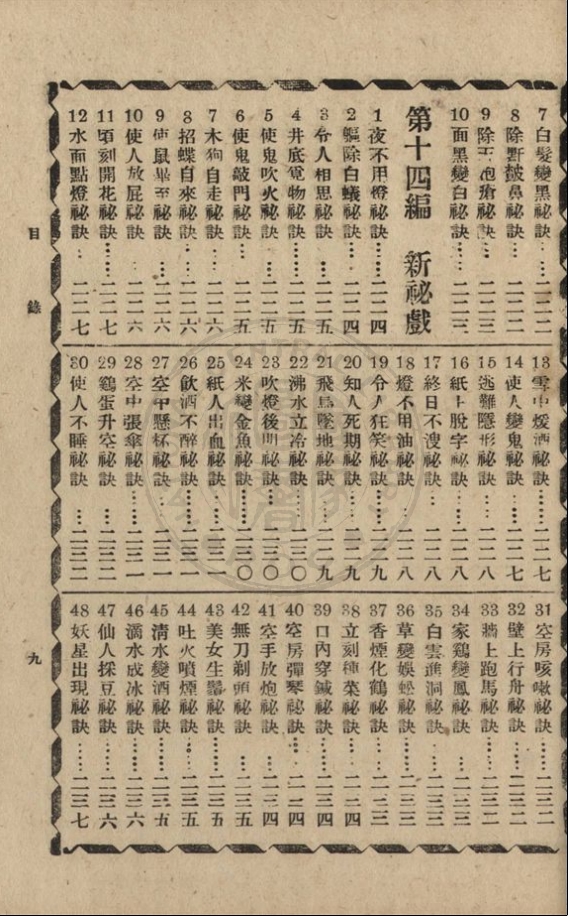 7 白髮變黑祕訣……二二二
8 除野皷鼻祕訣……二二二
9 除 皰瘡祕訣……二二三
10 面黑變白祕訣……二二三
第十四編 新祕戲
1 夜不用燈祕訣……二二四
2 驅除白蟻祕訣……二二四
3 令人相思祕訣……二二五
4 井底 物祕訣……二二五
5 使鬼吹火祕訣……二二五
6 使鬼敲門祕訣……二二五
7 木狗自走祕訣……二二六
8 招蝶自來祕訣……二二六
9 使鼠畢至祕訣……二二六
10 使人放屁祕訣……二二六
11 頃刻開花祕訣……二二七
12 水面點燈祕訣……二二七
13 雪中煖酒祕訣……二二七
14 使人變鬼祕訣……二二七
15 逃難隱形祕訣……二二八
16 紙上脫字祕訣……二二八
17 終日不溲祕訣……二二八
18 燈不用油祕訣……二二八
19 令人狂笑祕訣……二二九
20 知人死期祕訣……二二九
21 飛鳥墜地祕訣……二二九
22 沸水立冷祕訣……二三〇
23 吹燈後明祕訣……二三〇
24 米變金魚祕訣……二三〇
25 紙人出血祕訣……二三一
26 飲酒不醉祕訣……二三一
27 空中懸杯祕訣……二三一
28 空中張傘祕訣……二三一
29 鷄蛋升空祕訣……二三二
30 使人不睡祕訣……二三二
31 空房咳嗽祕訣……二三二
32 壁上行舟祕訣……二三二
33 牆上跑馬祕訣……二三二
34 家鷄變鳳祕訣……二三三
35 白雲進洞祕訣……二三三
36 草變蜈蚣祕訣……二三三
37 香煙化鶴祕訣……二三三
38 立刻種菜祕訣……二三四
39 口內穿鍼祕訣……二三四
40 空房彈琴祕訣……二三四
41 空手放炮祕訣……二三四
42 無刀剃頭祕訣……二三五
43 美女生鬍祕訣……二三五
44 吐火噴煙祕訣……二三五
45 清水變酒祕訣……二三五
46 滴水成冰祕訣……二三六
47 仙人採豆祕訣……二三六
48 妖星出現祕訣……二三七
目錄
九